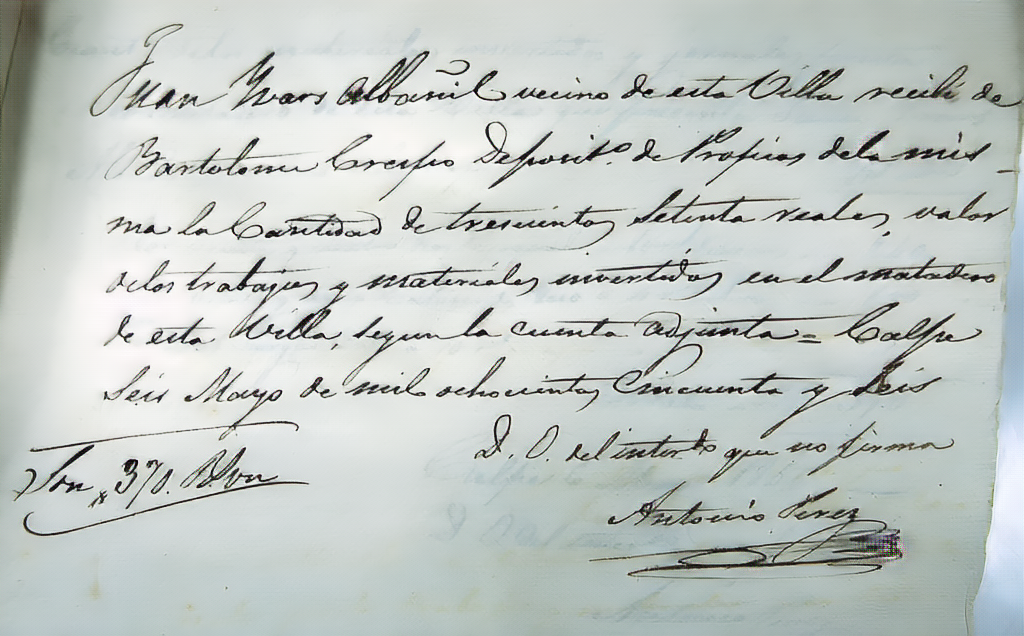 Juan Yvars Albañil vecino de esta Villa recibi de
Bartolome Crespo Deposit.º de Propios dela mis-
ma la Cantidad de trescientos setenta reales, valor
delos trabajos y materiales invertidos en el matadero
de esta Villa, segun la cuenta adjunta = Calpe
Seis Mayo de mil ochocientos Cincuenta y Seis
D. O. del interdo que no firma
Son 370. Rs. von
Antonio Perez